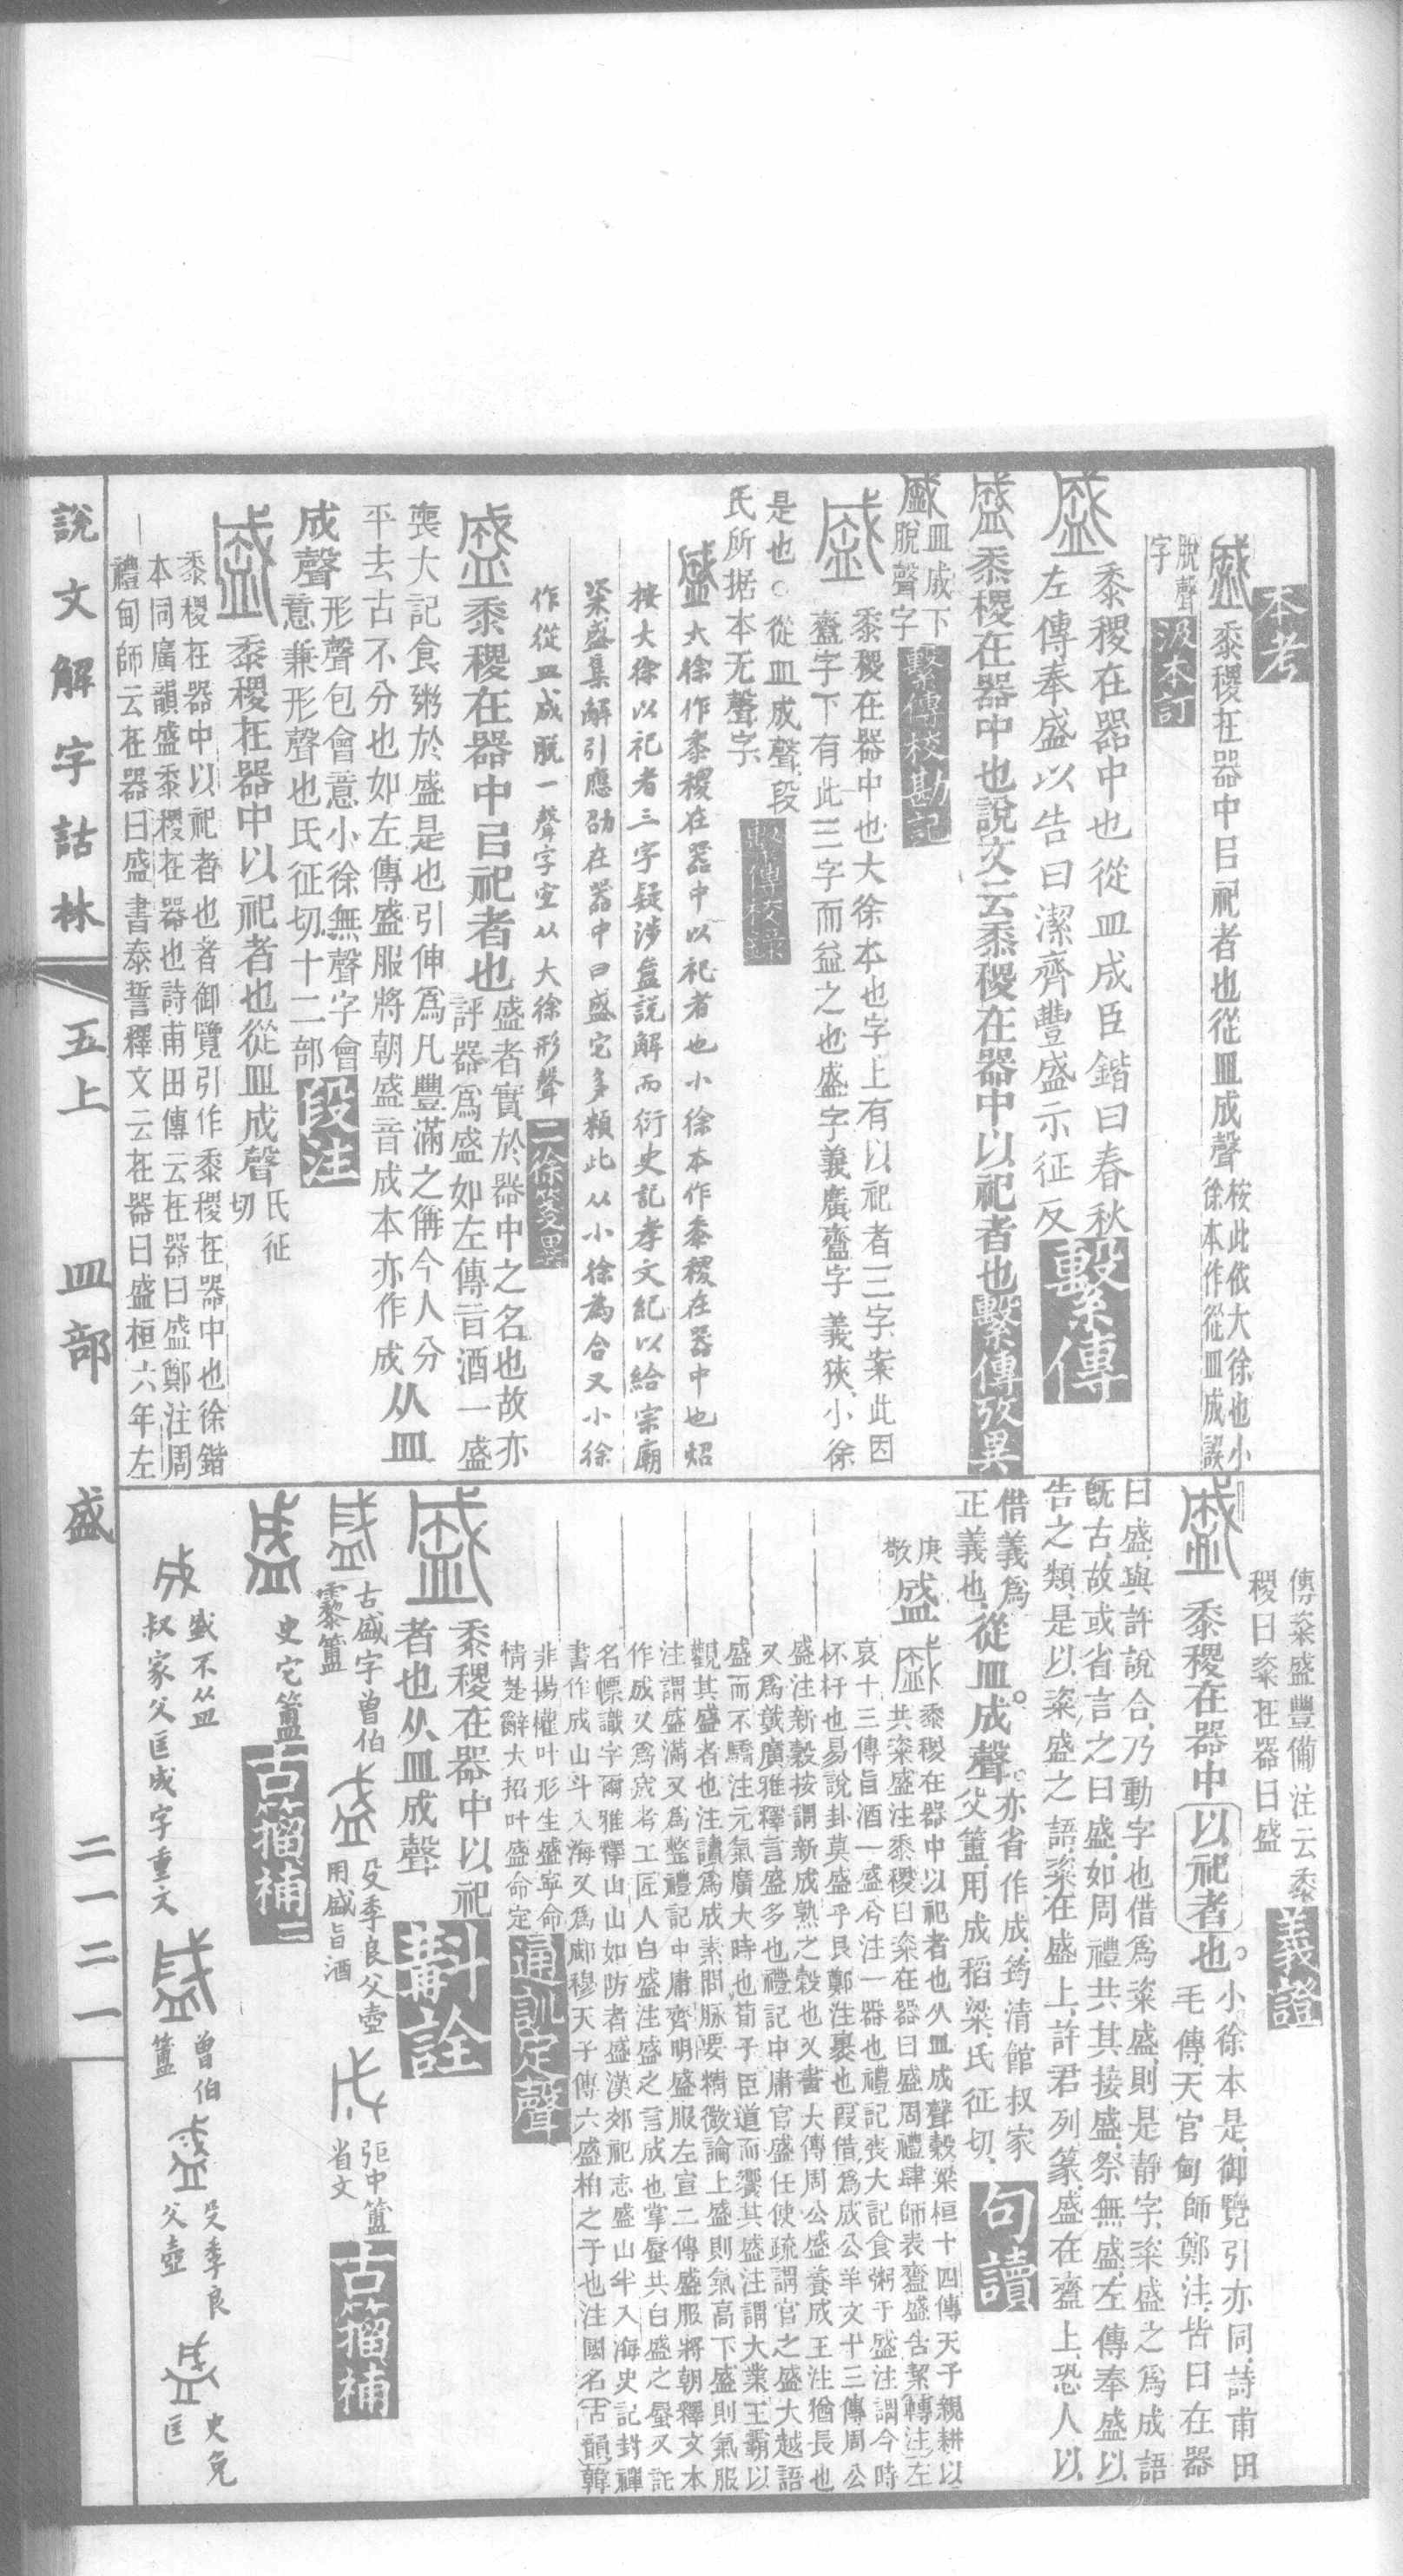 本考
盛 黍稷在器中㠯祀者也從皿成聲 桉此依大徐也小
徐本作從皿成誤
脫聲
字 汲本訂
盛 黍稷在器中也從皿成臣鍇曰春秋
左傳奉盛以告曰潔齊豐盛示征反 繫傳
盛 黍稷在器中也說文云黍稷在器中以祀者也 繫傳攷異
盛 皿成下
脫聲字 繫傳校勘記
盛 黍稷在器中也大徐本也字上有以祀者三字案此因
齍字下有此三字而益之也盛字義廣齍字義狹小徐
是也○從皿成聲段
氏所据本无聲字 繫傳校錄
盛 大徐作黍稷在器中以祀者也小徐本作黍稷在器中也炤
按大徐以祀者三字疑涉齍說解而衍史記孝文紀以給宗廟
粢盛集解引應劭在器中曰盛它多類此从小徐為合又小徐
作從皿成脫一聲字宜从大徐形聲 二徐箋異
盛 黍稷在器中㠯祀者也 盛者實於器中之名也故亦
評器爲盛如左傳旨酒一盛
喪大記食粥於盛是也引伸爲凡豐滿之偁今人分
平去古不分也如左傳盛服將朝盛音成本亦作成 从皿
成聲 形聲包會意小徐無聲字會
意兼形聲也氏征切十二部 段注
盛 黍稷在器中以祀者也從皿成聲 氏征
切
黍稷在器中以祀者也者御覽引作黍稷在器中也徐鍇
本同廣韻盛黍稷在器也詩甫田傳云在器曰盛鄭注周
禮甸師云在器曰盛書泰誓釋文云在器曰盛桓六年左
說文解字詁林 五上 皿部 盛 二一二一
傳粢盛豐備注云黍
稷曰粢在器曰盛 義證
盛 黍稷在器中以祀者也。 小徐本是御覽引亦同詩甫田
毛傳天官甸師鄭注皆曰在器
曰盛與許說合乃動字也借爲粢盛則是靜字粢盛之爲成語
旣古故或省言之曰盛如周禮共其接盛祭無盛左傳奉盛以
告之類是以粢盛之語粢在盛上許君列篆盛在齍上恐人以
借義爲
正義也 從皿成聲。 亦省作成筠清館叔家
父簠用成稻粱氏征切 句讀
庚
敬 盛 盛 黍稷在器中以祀者也从皿成聲穀梁桓十四傳天子親耕以
共粢盛注黍稷曰粢在器曰盛周禮肆師表齍盛告絜轉注左
哀十三傳旨酒一盛兮注一器也禮記喪大記食粥于盛注謂今時
杯杅也易說卦莫盛乎艮鄭注裹也叚借爲成公羊文十三傳周公
盛注新穀按謂新成熟之穀也又書大傳周公盛養成王注猶長也
又爲䞓廣雅釋言盛多也禮記中庸官盛任使疏謂官之盛大越語
盛而不驕注元氣廣大時也荀子臣道而饗其盛注謂大業王霸以
觀其盛者也注讀爲成素問脈要精微論上盛則氣高下盛則氣服
注謂盛滿又爲整禮記中庸齊明盛服左宣二傳盛服將朝釋文本
作成又爲宬考工匠人白盛注盛之言成也掌蜃共白盛之蜃又託
名幖識字爾雅釋山山如防者盛漢郊祀志盛山斗入海史記封禪
書作成山斗入海又爲郕穆天子傳六盛柏之子也注國名古韻韓
非揚權叶形生盛寧命
情楚辭大招叶盛命定 通訓定聲
盛 黍稷在器中以祀
者也从皿成聲 斠詮
古盛字曾伯
霥簠
殳季良父壺
用盛旨酒
弡中簠
省文 古籀補
史宂簠 古籀補二
盛不从皿
叔家父匡成字重文
曾伯
簠
殳季良
父壺
史免
匡